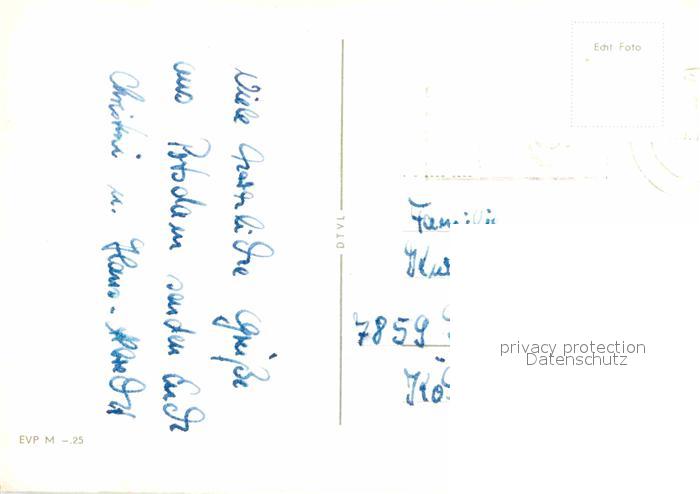 Echt Foto
Viele herzliche Grüße
aus Potsdam senden Euch
Christine u. Hans-
DTVL
Familie
7859
privacy protection
Datenschutz
EVP M -.25